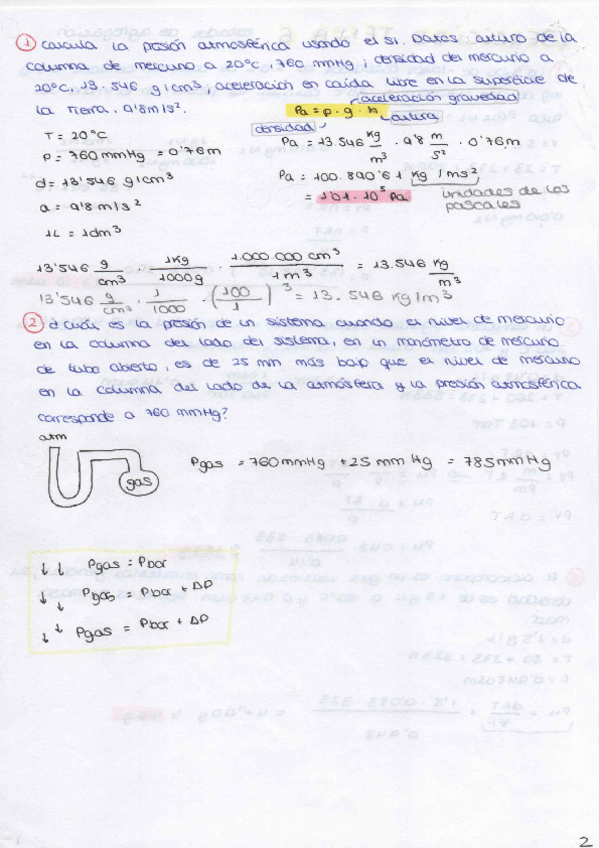 ① Calcula la presión atmosférica usando el SI. Datos: altura de la
columna de mercurio a 20°C, 760 mmHg; densidad del mercurio a
20°C, 13.546 g/cm³, aceleración en caída libre en la superficie de
la tierra. 9'8m/s².
aceleración gravedad
Pa = p · g · h
altura
densidad
T = 20°C
P = 760 mmHg = 0'76m
d = 13'546 g/cm³
a = 9'8 m/s²
1L = 1dm³
Pa = 13.546 kg/m³ · 9'8 m/s² · 0'76m
Pa = 100.890'61 kg/ms²
= 1'01 · 10⁵ Pa
unidades de los
pascales
13'546 g/cm³ · 1kg/1000g · 1.000.000 cm³/1 m³ = 13.546 kg/m³
13'546 g/cm³ · 1/1000 · (100/1)³ = 13.546 kg/m³
② ¿Cuál es la presión de un sistema cuando el nivel de mercurio
en la columna del lado del sistema, en un manómetro de mercurio
de tubo abierto, es de 25 mm más bajo que el nivel de mercurio
en la columna del lado de la atmósfera y la presión atmosférica
corresponde a 760 mmHg?
atm
gas
Pgas = 760 mmHg + 25 mm Hg = 785 mmHg
↓ ↓ Pgas = Pbar
↓ ↓ Pgas = Pbar + ΔP
↓ ↓ Pgas = Pbar + ΔP
2